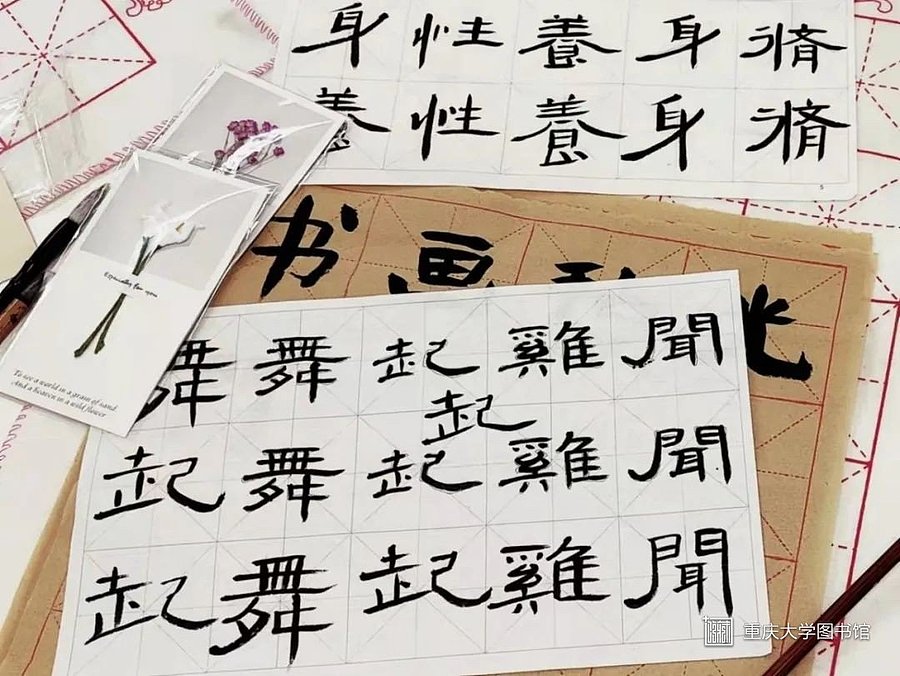 脩身養性身
脩身養性養
5
书画
聞雞起舞舞
起
聞雞起舞起
聞雞起舞起
Especially for you
To see a world in a grain of sand
And a heaven in a wild flower
重庆大学图书馆